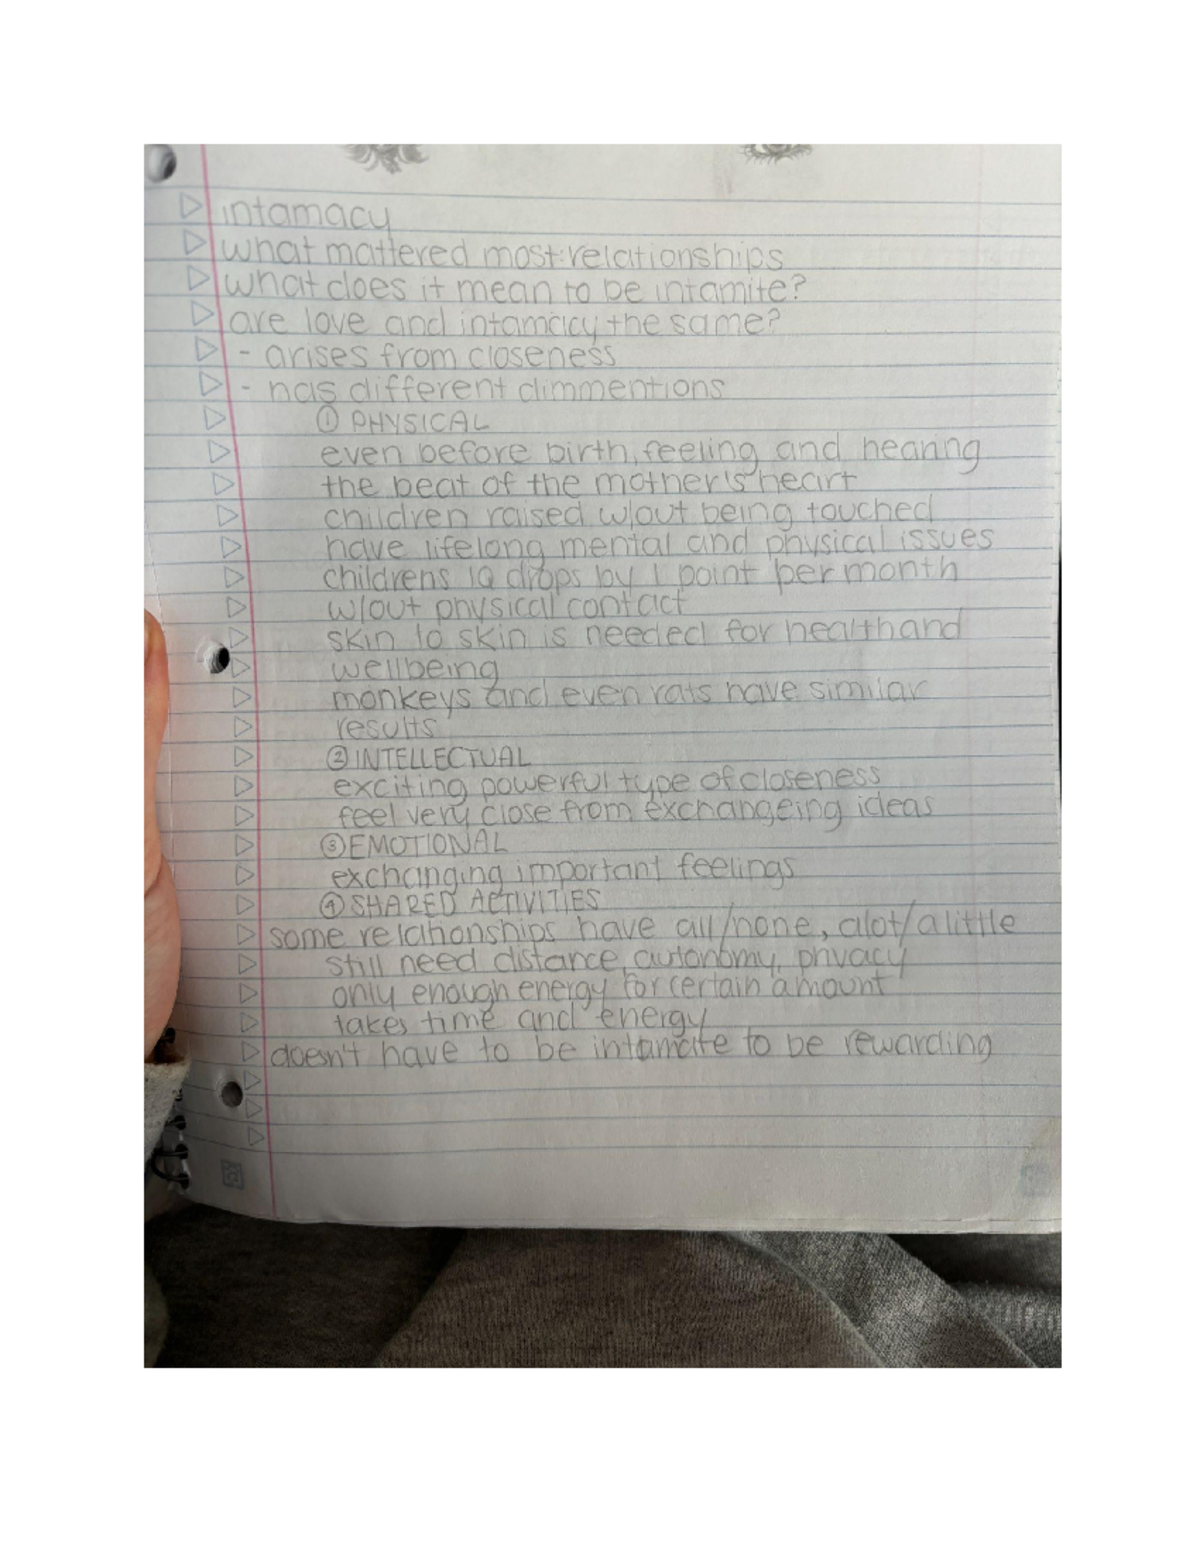 intamacy
what mattered most: relationships
what does it mean to be intamite?
are love and intamacy the same?
- arises from closeness
- has different dimmentions
① PHYSICAL
even before birth, feeling and hearing
the beat of the mother's heart
children raised w/out being touched
have lifelong mental and physical issues
childrens IQ drops by 1 point per month
w/out physical contact
skin to skin is needed for health and
wellbeing
monkeys and even rats have similar
results
② INTELLECTUAL
exciting powerful type of closeness
feel very close from exchangeing ideas
③ EMOTIONAL
exchanging important feelings
④ SHARED ACTIVITIES
some relationships have all/none, alot/a little
still need distance, autonomy, privacy
only enough energy for certain amount
takes time and energy
doesn't have to be intamate to be rewarding